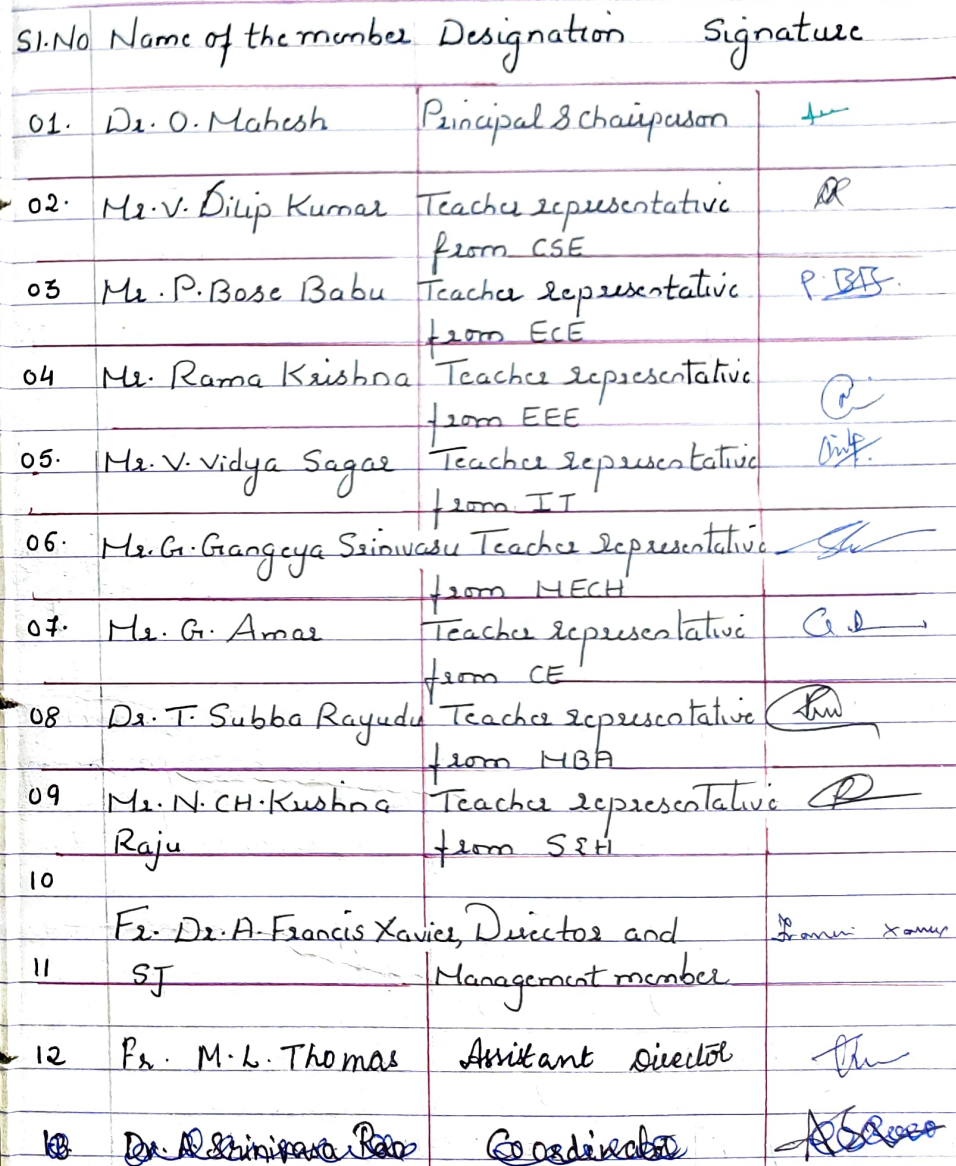 Sl.No Name of the member Designation Signature
01. Dr. O. Mahesh Principal & chairperson
02. Mr. V. Dilip Kumar Teacher representative
from CSE
03 Mr. P. Bose Babu Teacher representative P. 
from ECE
04 Mr. Rama Krishna Teacher representative
from EEE
05. Mr. V. Vidya Sagar Teacher representative
from IT
06. Mr. G. Gangeya Srinivasu Teacher representative
from MECH
07. Mr. G. Amar Teacher representative
from CE
08 Dr. T. Subba Rayudu Teacher representative
from MBA
09 Mr. N. CH. Krishna Teacher representative
Raju from S&H
10
Fr. Dr. A. Francis Xavier, Director and Francis Xavier
11 SJ Management member
12 Fr. M. L. Thomas Assistant Director
13 Dr. A Srinivasa Rao Coordinator